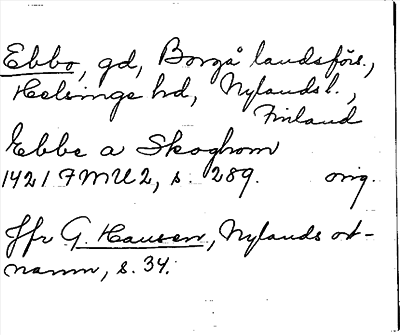 Ebbo, gd, Borgå landsförs.,
Helsinge hd, Nylands l.,
Finland
Ebbe a Skoghom
1421 FMU2, s. 289. orig.
Jfr G. Hausen, Nylands ort-
namn, s. 34.